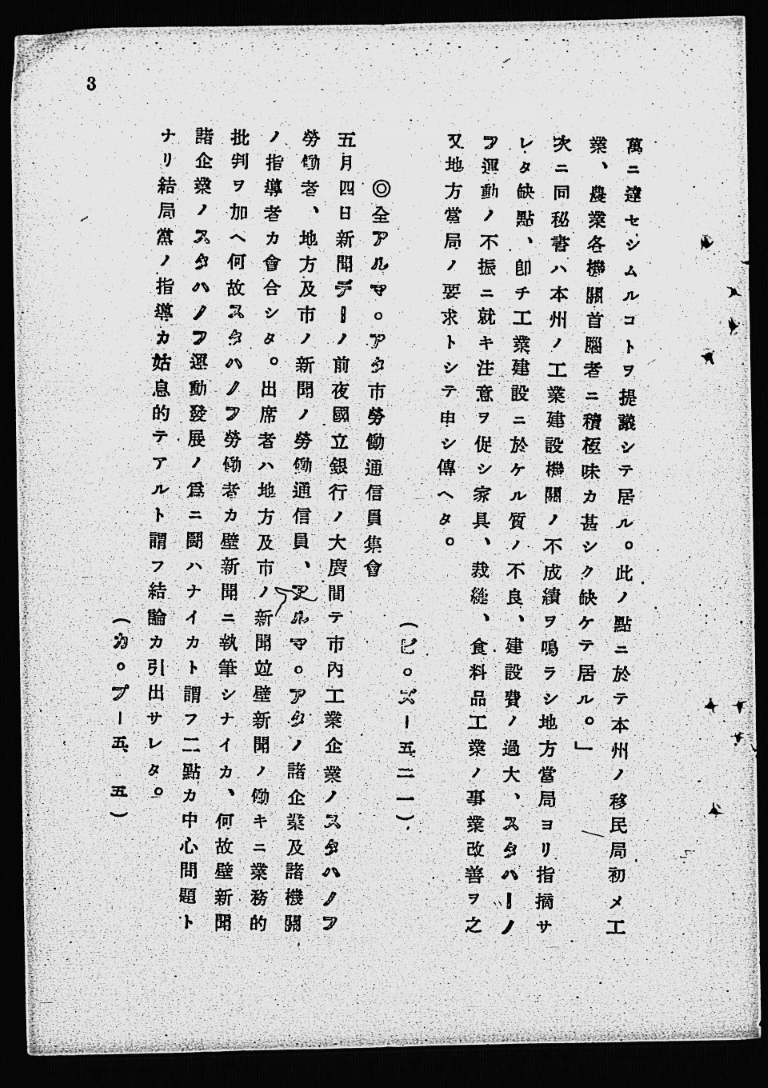 3
萬ニ達セシムルコトヲ提議シテ居ル。此ノ點ニ於テ本州ノ移民局初メ工
業、農業各機關首腦者ニ積極味カ甚シク缺ケテ居ル。」
次ニ同秘書ハ本州ノ工業建設機關ノ不成績ヲ鳴ラシ地方當局ヨリ指摘サ
レタ缺點、卽チ工業建設ニ於ケル質ノ不良、建設費ノ過大、スタハーノ
フ運動ノ不振ニ就キ注意ヲ促シ家具、裁縫、食料品工業ノ事業改善ヲ之
又地方當局ノ要求トシテ申シ傳ヘタ。
(ピ。ズー五、二一)
◎全アルマ。アタ市勞働通信員集會
五月四日新聞デーノ前夜國立銀行ノ大廣間テ市內工業企業ノスタハノフ
勞働者、地方及市ノ新聞ノ勞働通信員、アルマ。アタノ諸企業及諸機關
ノ指導者カ會合シタ。出席者ハ地方及市ノ新聞竝壁新聞ノ働キニ業務的
批判ヲ加ヘ何故スタハノフ勞働者カ壁新聞ニ執筆シナイカ、何故壁新聞
諸企業ノスタハノフ運動發展ノ爲ニ鬪ハナイカト謂フ二點カ中心問題ト
ナリ結局黨ノ指導カ姑息的テアルト謂フ結論カ引出サレタ。
(カ。プー五、五)